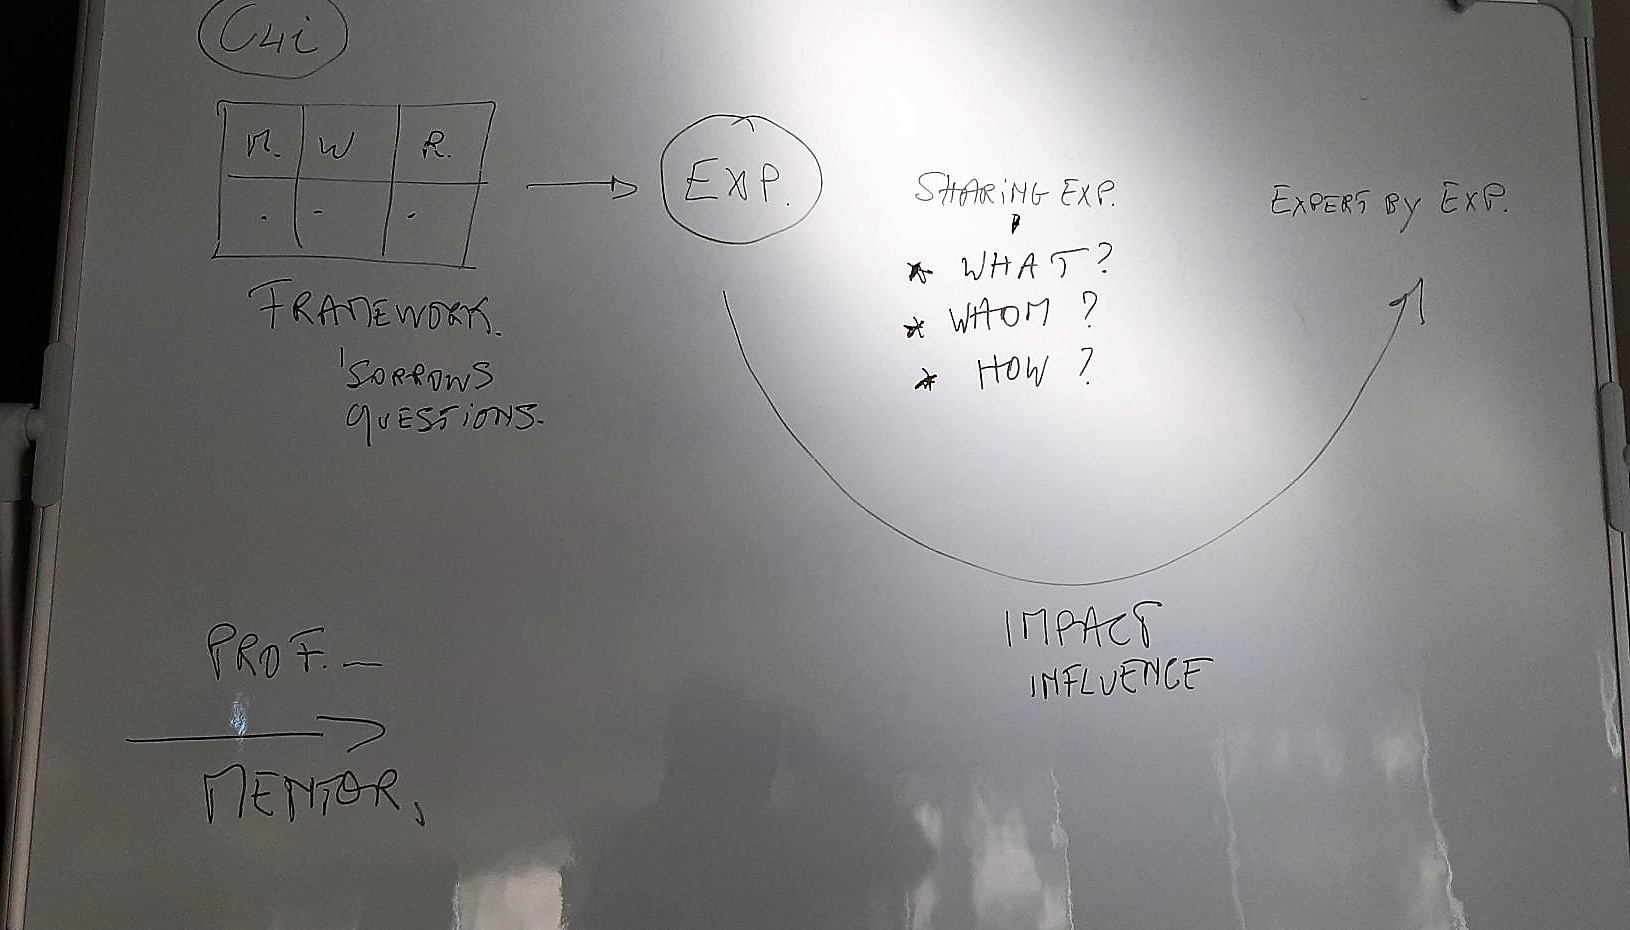 C4i
M. W R.
FRAMEWORK.
'SORROWS
QUESTIONS.
EXP.
SHARiNG EXP.
* WHAT?
* WHOM ?
* HOW ?
EXPERT BY EXP.
IMPACT
INFLUENCE
PROF. —
MENTOR,